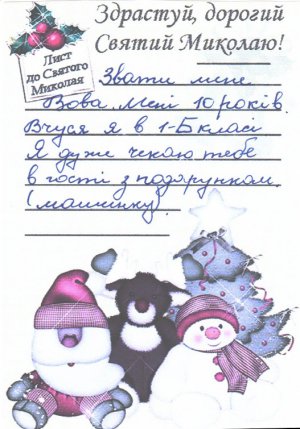 Здрастуй, дорогий
Святий Миколаю!
Лист
до Святого
Миколая
Звати мене
Вова. Мені 10 років.
Вчуся я в 1-Б класі
Я дуже чекаю тебе
в гості з подарунком.
(машинку).